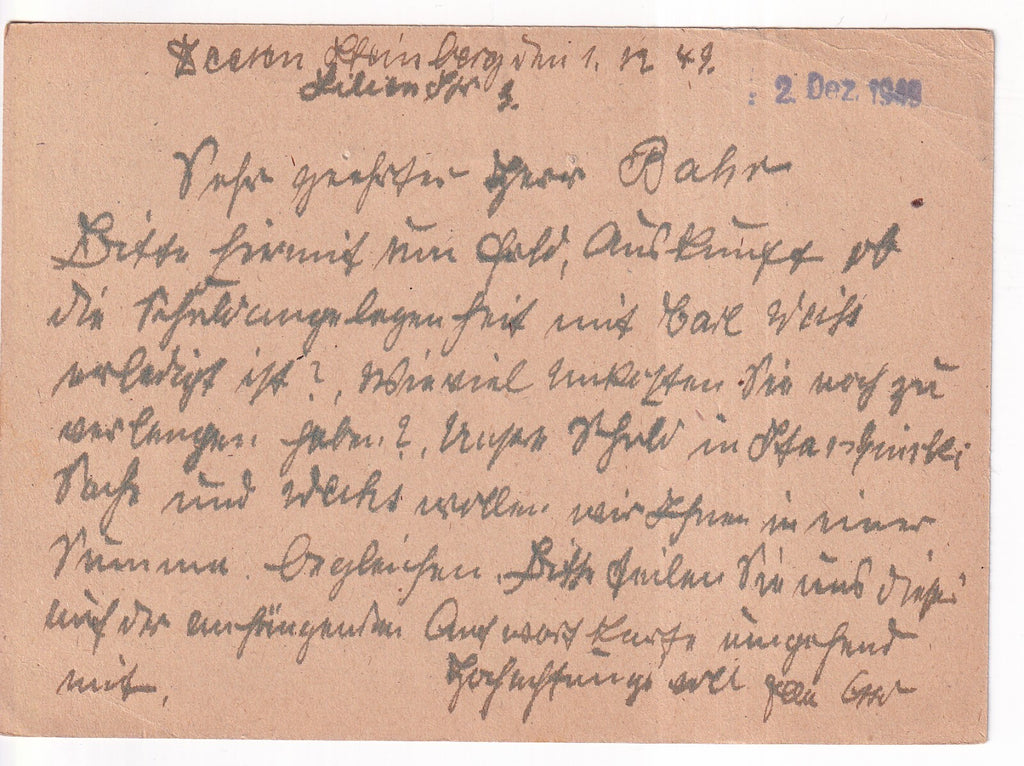 Steinberg den 1. 12 49.
Lilienstr 9.
2. Dez. 1949
Sehr geehrter Herr Bahr
Bitte hiermit um Auskunft ob
die Schuldangelegenheit mit Carl
erledigt ist?, Wieviel Unkosten Sie noch zu
verlangen haben?, Unsere Schuld in
Sache und wollen wir Ihnen in einer
Summe. begleichen. Bitte teilen Sie uns dieses
auf der anhängenden Antwortkarte umgehend
mit. Hochachtungsvoll